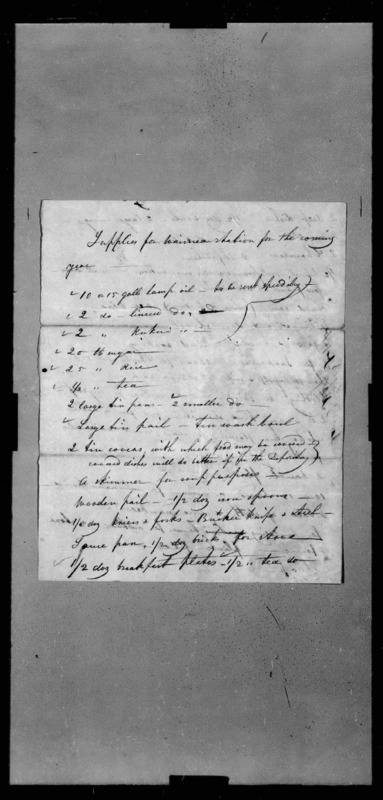 Supplies for Waimea station for the coming
year
10 or 15 galls lamp oil - to be sent speedily
2 do - linseed do,
2 "
20 lb sugar
25 " Rice
" tea
2 large tin pans - 2 smaller do
Large tin pail - tin wash bowl
2 tin covers, with which food may be covered
covered dishes will do better if in the Depository
A skimmer for soup purposes
Wooden pail - 1/2 doz iron spoons -
1/2 doz knives & forks - Butcher Knife & steel -
Sauce pan, 1/2 doz brick, for stove
1/2 doz breakfast plates - 1/2 " tea do